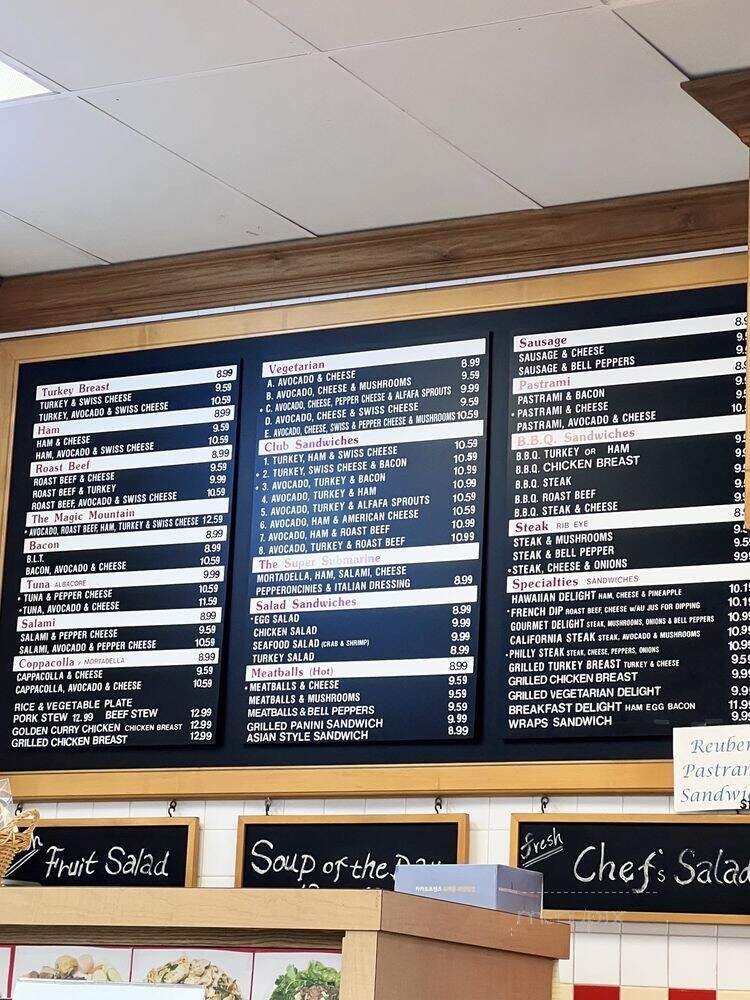 Turkey Breast 8.99
TURKEY & SWISS CHEESE 9.59
TURKEY, AVOCADO & SWISS CHEESE 10.59
Ham 8.99
HAM & CHEESE 9.59
HAM, AVOCADO & SWISS CHEESE 10.59
Roast Beef 8.99
ROAST BEEF & CHEESE 9.59
ROAST BEEF & TURKEY 9.99
ROAST BEEF, AVOCADO & SWISS CHEESE 10.59
The Magic Mountain
• AVOCADO, ROAST BEEF, HAM, TURKEY & SWISS CHEESE 12.59
Bacon 8.99
B.L.T. 8.99
BACON, AVOCADO & CHEESE 10.59
Tuna ALBACORE 9.99
• TUNA & PEPPER CHEESE 10.59
• TUNA, AVOCADO & CHEESE 11.59
Salami 8.99
SALAMI & PEPPER CHEESE 9.59
SALAMI, AVOCADO & PEPPER CHEESE 10.59
Coppacolla MORTADELLA 8.99
CAPPACOLLA & CHEESE 9.59
CAPPACOLLA, AVOCADO & CHEESE 10.59
RICE & VEGETABLE PLATE
PORK STEW 12.99 BEEF STEW 12.99
GOLDEN CURRY CHICKEN CHICKEN BREAST 12.99
GRILLED CHICKEN BREAST 12.99
Vegetarian 8.99
A. AVOCADO & CHEESE 9.59
B. AVOCADO, CHEESE & MUSHROOMS 9.99
• C. AVOCADO, CHEESE, PEPPER CHEESE & ALFAFA SPROUTS
D. AVOCADO, CHEESE & SWISS CHEESE 9.59
E. AVOCADO, CHEESE, SWISS & PEPPER CHEESE & MUSHROOMS 10.59
Club Sandwiches
1. TURKEY, HAM & SWISS CHEESE 10.59
• 2. TURKEY, SWISS CHEESE & BACON 10.59
• 3. AVOCADO, TURKEY & BACON 10.99
4. AVOCADO, TURKEY & HAM 10.99
5. AVOCADO, TURKEY & ALFAFA SPROUTS 10.59
6. AVOCADO, HAM & AMERICAN CHEESE 10.59
7. AVOCADO, HAM & ROAST BEEF 10.99
8. AVOCADO, TURKEY & ROAST BEEF 10.99
The Super Submarine
MORTADELLA, HAM, SALAMI, CHEESE
PEPPERONCINIES & ITALIAN DRESSING 8.99
Salad Sandwiches
• EGG SALAD 8.99
CHICKEN SALAD 9.99
SEAFOOD SALAD (CRAB & SHRIMP) 9.99
TURKEY SALAD 8.99
Meatballs (Hot) 8.99
• MEATBALLS & CHEESE 9.59
MEATBALLS & MUSHROOMS 9.59
MEATBALLS & BELL PEPPERS 9.59
GRILLED PANINI SANDWICH 9.99
ASIAN STYLE SANDWICH 8.99
Sausage
SAUSAGE & CHEESE
SAUSAGE & BELL PEPPERS
Pastrami
PASTRAMI & BACON
• PASTRAMI & CHEESE
PASTRAMI, AVOCADO & CHEESE
B.B.Q. Sandwiches
B.B.Q. TURKEY OR HAM
B.B.Q. CHICKEN BREAST
B.B.Q. STEAK
B.B.Q. ROAST BEEF
B.B.Q. STEAK & CHEESE
Steak RIB EYE
STEAK & MUSHROOMS
STEAK & BELL PEPPER
• STEAK, CHEESE & ONIONS
Specialties SANDWICHES
HAWAIIAN DELIGHT HAM, CHEESE & PINEAPPLE
• FRENCH DIP ROAST BEEF, CHEESE W/AU JUS FOR DIPPING
GOURMET DELIGHT STEAK, MUSHROOMS, ONIONS & BELL PEPPERS
CALIFORNIA STEAK STEAK, AVOCADO & MUSHROOMS
• PHILLY STEAK STEAK, CHEESE, PEPPERS, ONIONS
GRILLED TURKEY BREAST TURKEY & CHEESE
GRILLED CHICKEN BREAST
GRILLED VEGETARIAN DELIGHT
BREAKFAST DELIGHT HAM EGG BACON
WRAPS SANDWICH
Reuben
Pastrami
Sandwich
Fruit Salad
Soup of the Day
Fresh
Chef's Salad